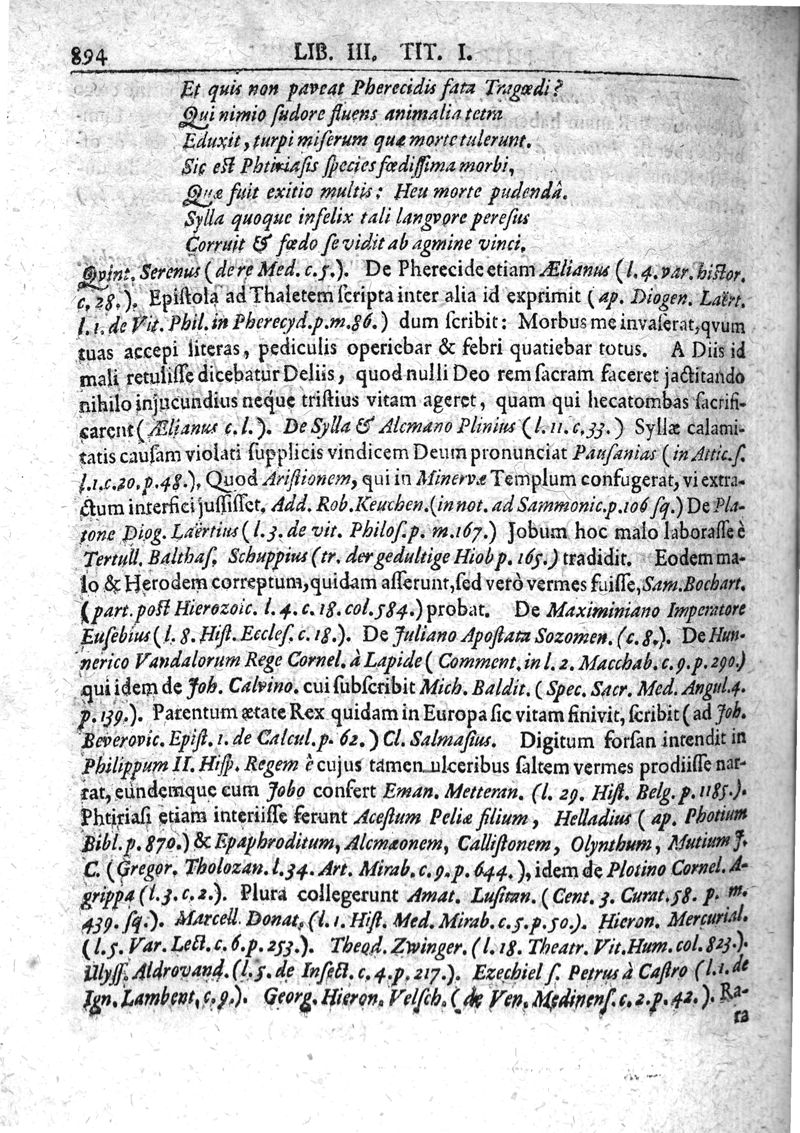 894 LIB. III. TIT. I.
Et quis non paveat Pherecidis fata Tragœdi?
Qui nimio ſudore fluens animalia tetra
Eduxit, turpi miſerum quæ morte tulerunt.
Sic eſt Phtiriaſis ſpecies fœdiſſima morbi,
Quæ fuit exitio multis: Heu morte pudendâ.
Sylla quoque infelix tali langvore pereſus
Corruit & fœdo ſe vidit ab agmine vinci.
Qvint. Serenus (de re Med. c. 5.). De Pherecide etiam Ælianus (l. 4. var. hiſtor.
c. 28.). Epiſtola ad Thaletem ſcripta inter alia id exprimit (ap. Diogen. Laërt.
l. 1. de Vit. Phil. in Pherecyd. p. m. 86.) dum ſcribit: Morbus me invaſerat, qvum
tuas accepi literas, pediculis operiebar & febri quatiebar totus. A Diis id
mali retuliſſe dicebatur Deliis, quod nulli Deo rem ſacram faceret jactitando
nihilo injucundius neque triſtius vitam ageret, quam qui hecatombas ſacrifi-
carent (Ælianus c. l.). De Sylla & Alcmano Plinius (l. 11. c. 33.) Syllæ calami-
tatis cauſam violati ſupplicis vindicem Deum pronunciat Pauſanias (in Attic. ſ.
l. 1. c. 20. p. 48.), Quod Ariſtionem, qui in Minervæ Templum confugerat, vi extra-
ctum interfici juſſiſſet. Add. Rob. Keuchen. (in not. ad Sammonic. p. 106 ſq.) De Pla-
tone Diog. Laërtius (l. 3. de vit. Philoſ. p. m. 167.) Jobum hoc malo laboraſſe è
Tertull. Balthaſ. Schuppius (tr. der gedultige Hiob p. 165.) tradidit. Eodem ma-
lo & Herodem correptum, quidam aſſerunt, ſed verò vermes fuiſſe, Sam. Bochart.
(part. poſt Hierozoic. l. 4. c. 18. col. 584.) probat. De Maximiniano Imperatore
Euſebius (l. 8. Hiſt. Eccleſ. c. 18.). De Juliano Apoſtata Sozomen. (c. 8.). De Hun-
nerico Vandalorum Rege Cornel. à Lapide (Comment. in l. 2. Macchab. c. 9. p. 290.)
qui idem de Joh. Calvino. cui ſubſcribit Mich. Baldit. (Spec. Sacr. Med. Angul. 4.
p. 139.). Parentum ætate Rex quidam in Europa ſic vitam finivit, ſcribit (ad Joh.
Beverovic. Epiſt. 1. de Calcul. p. 62.) Cl. Salmaſius. Digitum forſan intendit in
Philippum II. Hiſp. Regem è cujus tamen ulceribus ſaltem vermes prodiiſſe nar-
rat, eundemque cum Jobo confert Eman. Metteran. (l. 29. Hiſt. Belg. p. 1185.).
Phtiriaſi etiam interiiſſe ferunt Aceſtum Peliæ filium, Helladius (ap. Photium
Bibl. p. 870.) & Epaphroditum, Alcmæonem, Calliſtonem, Olynthum, Mutium J.
C. (Gregor. Tholozan. l. 34. Art. Mirab. c. 9. p. 644.), idem de Plotino Cornel. A-
grippa (l. 3. c. 2.). Plura collegerunt Amat. Luſitan. (Cent. 3. Curat. 58. p. m.
439. ſq.). Marcell. Donat. (l. 1. Hiſt. Med. Mirab. c. 5. p. 50.). Hieron. Mercurial.
(l. 5. Var. Lect. c. 6. p. 253.). Theod. Zwinger. (l. 18. Theatr. Vit. Hum. col. 823.).
Ulyſſ. Aldrovand. (l. 5. de Inſect. c. 4. p. 217.). Ezechiel ſ. Petrus à Caſtro (l. 1. de
Ign. Lambent. c. 9.). Georg. Hieron. Velſch. (de Ven. Medinenſ. c. 2. p. 42.). Ra-
ra